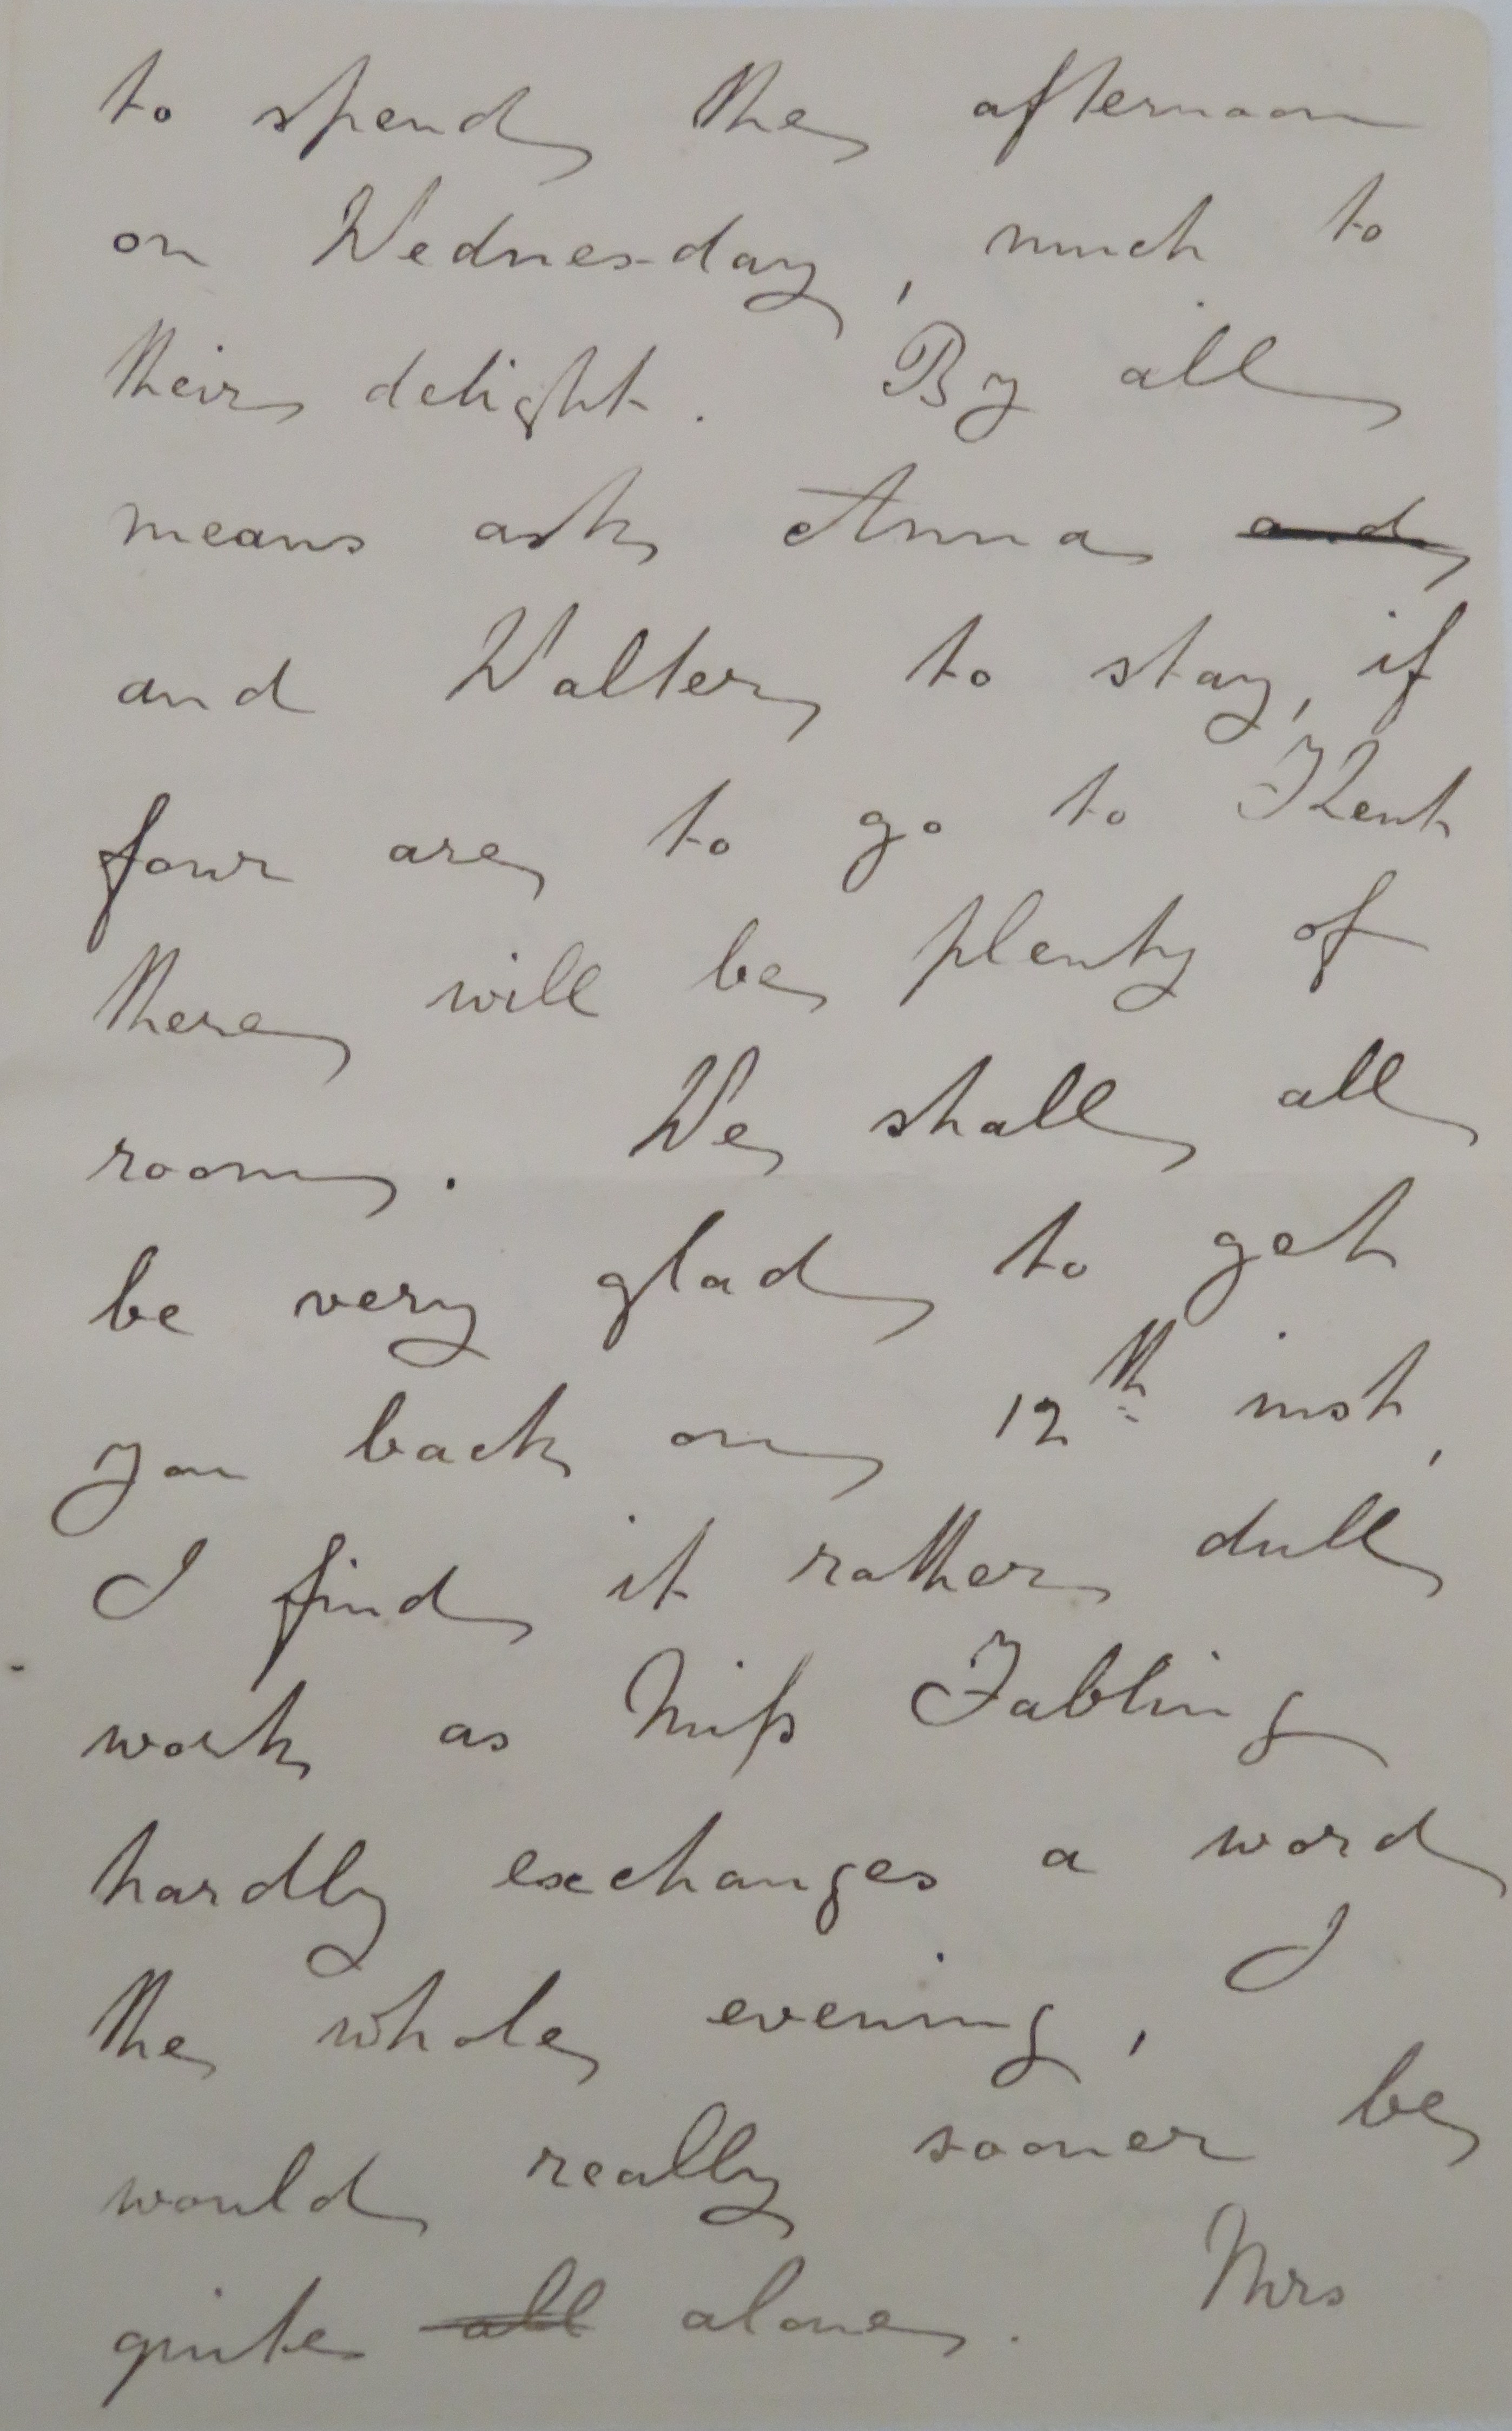 to spend the afternoon
on Wednesday, much to
their delight. By all
means ask Anna and
and Walter to stay, if
four are to go to Kent
there will be plenty of
room. We shall all
be very glad to get
you back on 12th inst,
I find it rather dull
work as Miss Fabling
hardly exchanges a word
the whole evening, I
would really sooner be
quite all alone. Mrs